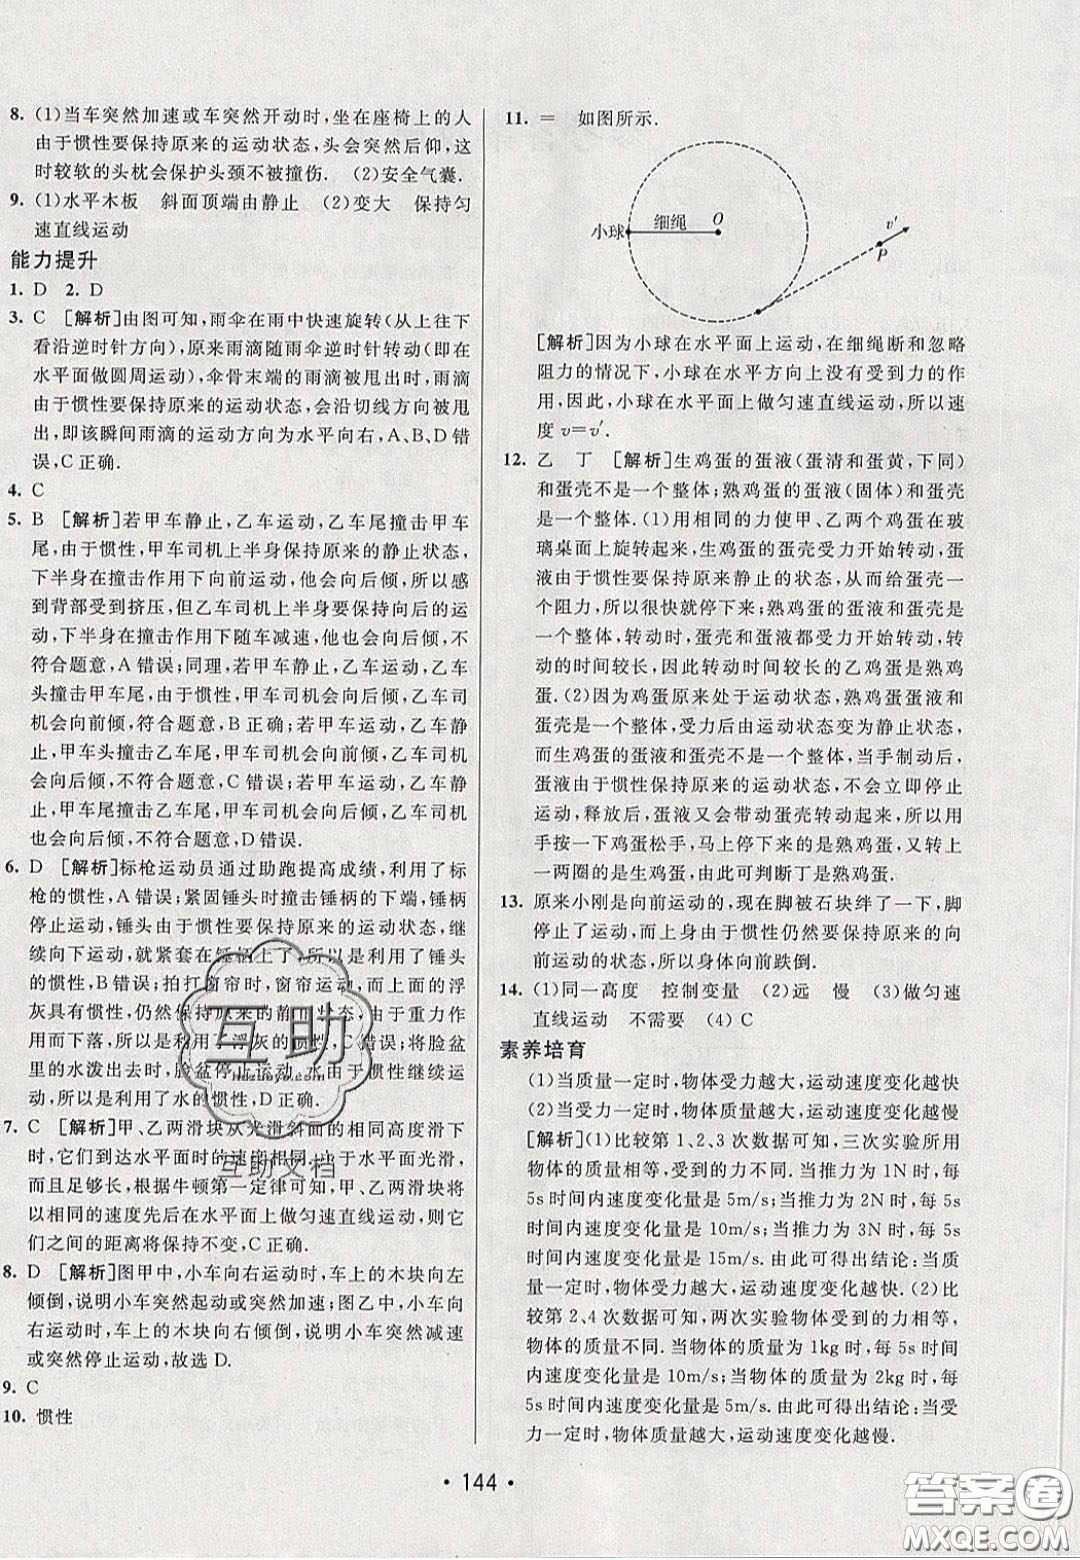 8. (1)当车突然加速或车突然开动时,坐在座椅上的人
由于惯性要保持原来的运动状态,头会突然后仰,这
时较软的头枕会保护头颈不被撞伤. (2)安全气囊.
9. (1)水平木板 斜面顶端由静止 (2)变大 保持匀
速直线运动
能力提升
1. D 2. D
3. C [解析]由图可知,雨伞在雨中快速旋转(从上往下
看沿逆时针方向),原来雨滴随雨伞逆时针转动(即在
水平面做圆周运动),伞骨末端的雨滴被甩出时,雨滴
由于惯性要保持原来的运动状态,会沿切线方向被甩
出,即该瞬间雨滴的运动方向为水平向右,A、B、D错
误,C正确.
4. C
5. B [解析]若甲车静止,乙车运动,乙车尾撞击甲车
尾,由于惯性,甲车司机上半身保持原来的静止状态,
下半身在撞击作用下向前运动,他会向后倾,所以感
到背部受到挤压,但乙车司机上半身要保持原来的运
动状态,下半身在撞击作用下随车减速,他会向后倾,不
符合题意,A错误;同理,若甲车静止,乙车运动,乙车
头撞击甲车尾,由于惯性,甲车司机会向后倾,乙车司
机会向前倾,符合题意,B正确;若甲车运动,乙车静
止,甲车头撞击乙车尾,甲车司机会向前倾,乙车司机
会向后倾,不符合题意,C错误;若甲车运动,乙车静
止,甲车尾撞击乙车尾,甲车司机会向后倾,乙车司机
也会向后倾,不符合题意,D错误.
6. D [解析]标枪运动员通过助跑提高成绩,利用了标
枪的惯性,A错误;紧固锤头时撞击锤柄的下端,锤柄
停止运动,锤头由于惯性要保持原来的运动状态,继
续向下运动,就紧套在锤柄上了,所以是利用了锤头
的惯性,B错误;拍打窗帘时,窗帘运动,上面的浮
灰具有惯性,仍然保持原来的静止状态,由于重力作用
而下落,所以是利用了浮灰的惯性,C错误;将脸盆里
的水泼出时,脸盆停止运动,水由于惯性继续运
动,所以是利用了水的惯性,D正确.
7. C [解析]甲、乙两滑块从光滑斜面的相同高度滑下
时,它们到达水平面时的速度相同,由于水平面光滑,
且足够长,根据牛顿第一定律可知,甲、乙两滑块将
以相同的速度先后在水平面上做匀速直线运动,则它
们之间的距离将保持不变,C正确.
8. D [解析]图甲中,小车向右运动时,车上的木块向左
倾倒,说明小车突然起动或突然加速;图乙中,小车向
右运动时,车上的木块向右倾倒,说明小车突然减速
或突然停止运动,故选D.
9. C
10. 惯性
11. = 如图所示.
小球 细绳 O v′ P
[解析]因为小球在水平面上运动,在细绳断和忽略
阻力的情况下,小球在水平方向上没有受到力的作
用,因此,小球在水平面上做匀速直线运动,所以速
度v=v′.
12. 乙 丁 [解析]生鸡蛋的蛋液(蛋清和蛋黄,下同)
和蛋壳不是一个整体;熟鸡蛋的蛋液(固体)和蛋壳
是一个整体.(1)用相同的力使甲、乙两个鸡蛋在玻
璃桌面上旋转时,生鸡蛋的蛋壳受力开始转动,蛋
液由于惯性要保持原来静止的状态,从而给蛋壳一
个阻力,所以很快就停下来;熟鸡蛋的蛋液和蛋壳是
一个整体,转动时,蛋壳和蛋液都受力开始转动,转
动的时间较长,因此转动时间较长的乙鸡蛋是熟鸡
蛋.(2)因为鸡蛋原来处于运动状态,熟鸡蛋蛋液和
蛋壳是一个整体,受力后由运动状态变为静止状态,
而生鸡蛋的蛋液和蛋壳不是一个整体,当手制动后,
蛋液由于惯性要保持原来的运动状态,不能停止
运动,释放后,蛋液又会带动蛋壳转动起来,所以用
手按一下鸡蛋松手,马上停止的是熟鸡蛋,再转上
一两圈的是生鸡蛋,由此可判断丁是熟鸡蛋.
13. 原来小刚是向前运动的,现在脚被石块绊了一下,脚
停止了运动,而上身由于惯性仍然要保持原来的向
前运动的状态,所以身体向前跌倒.
14. (1)同一高度 控制变量 (2)远 慢 (3)做匀速
直线运动 不需要 (4) C
素养培育
(1)当质量一定时,物体受力越大,运动速度变化越快
(2)当受力一定时,物体质量越大,运动速度变化越慢
[解析](1)比较第1、2、3次数据可知,三次实验所用
物体的质量相等,受到的力不同.当推力为1N时,每
5s时间内速度变化量是5m/s;当推力为2N时,每5s
时间内速度变化量是10m/s;当推力为3N时,每5s
时间内速度变化量是15m/s.由此可得出结论:当
质量一定时,物体受力越大,运动速度变化越快.(2)比
较第2、4次数据可知,两次实验物体受力大小相等,
物体的质量不同.当物体的质量为1kg时,每5s时
间内速度变化量是10m/s;当物体的质量为2kg时,每
5s时间内速度变化量是5m/s.由此可得出结论:当受
力一定时,物体质量越大,运动速度变化越慢.
· 144 ·
互助
Huzuoyo.com
互助文档
答案圈
MXQE.COM